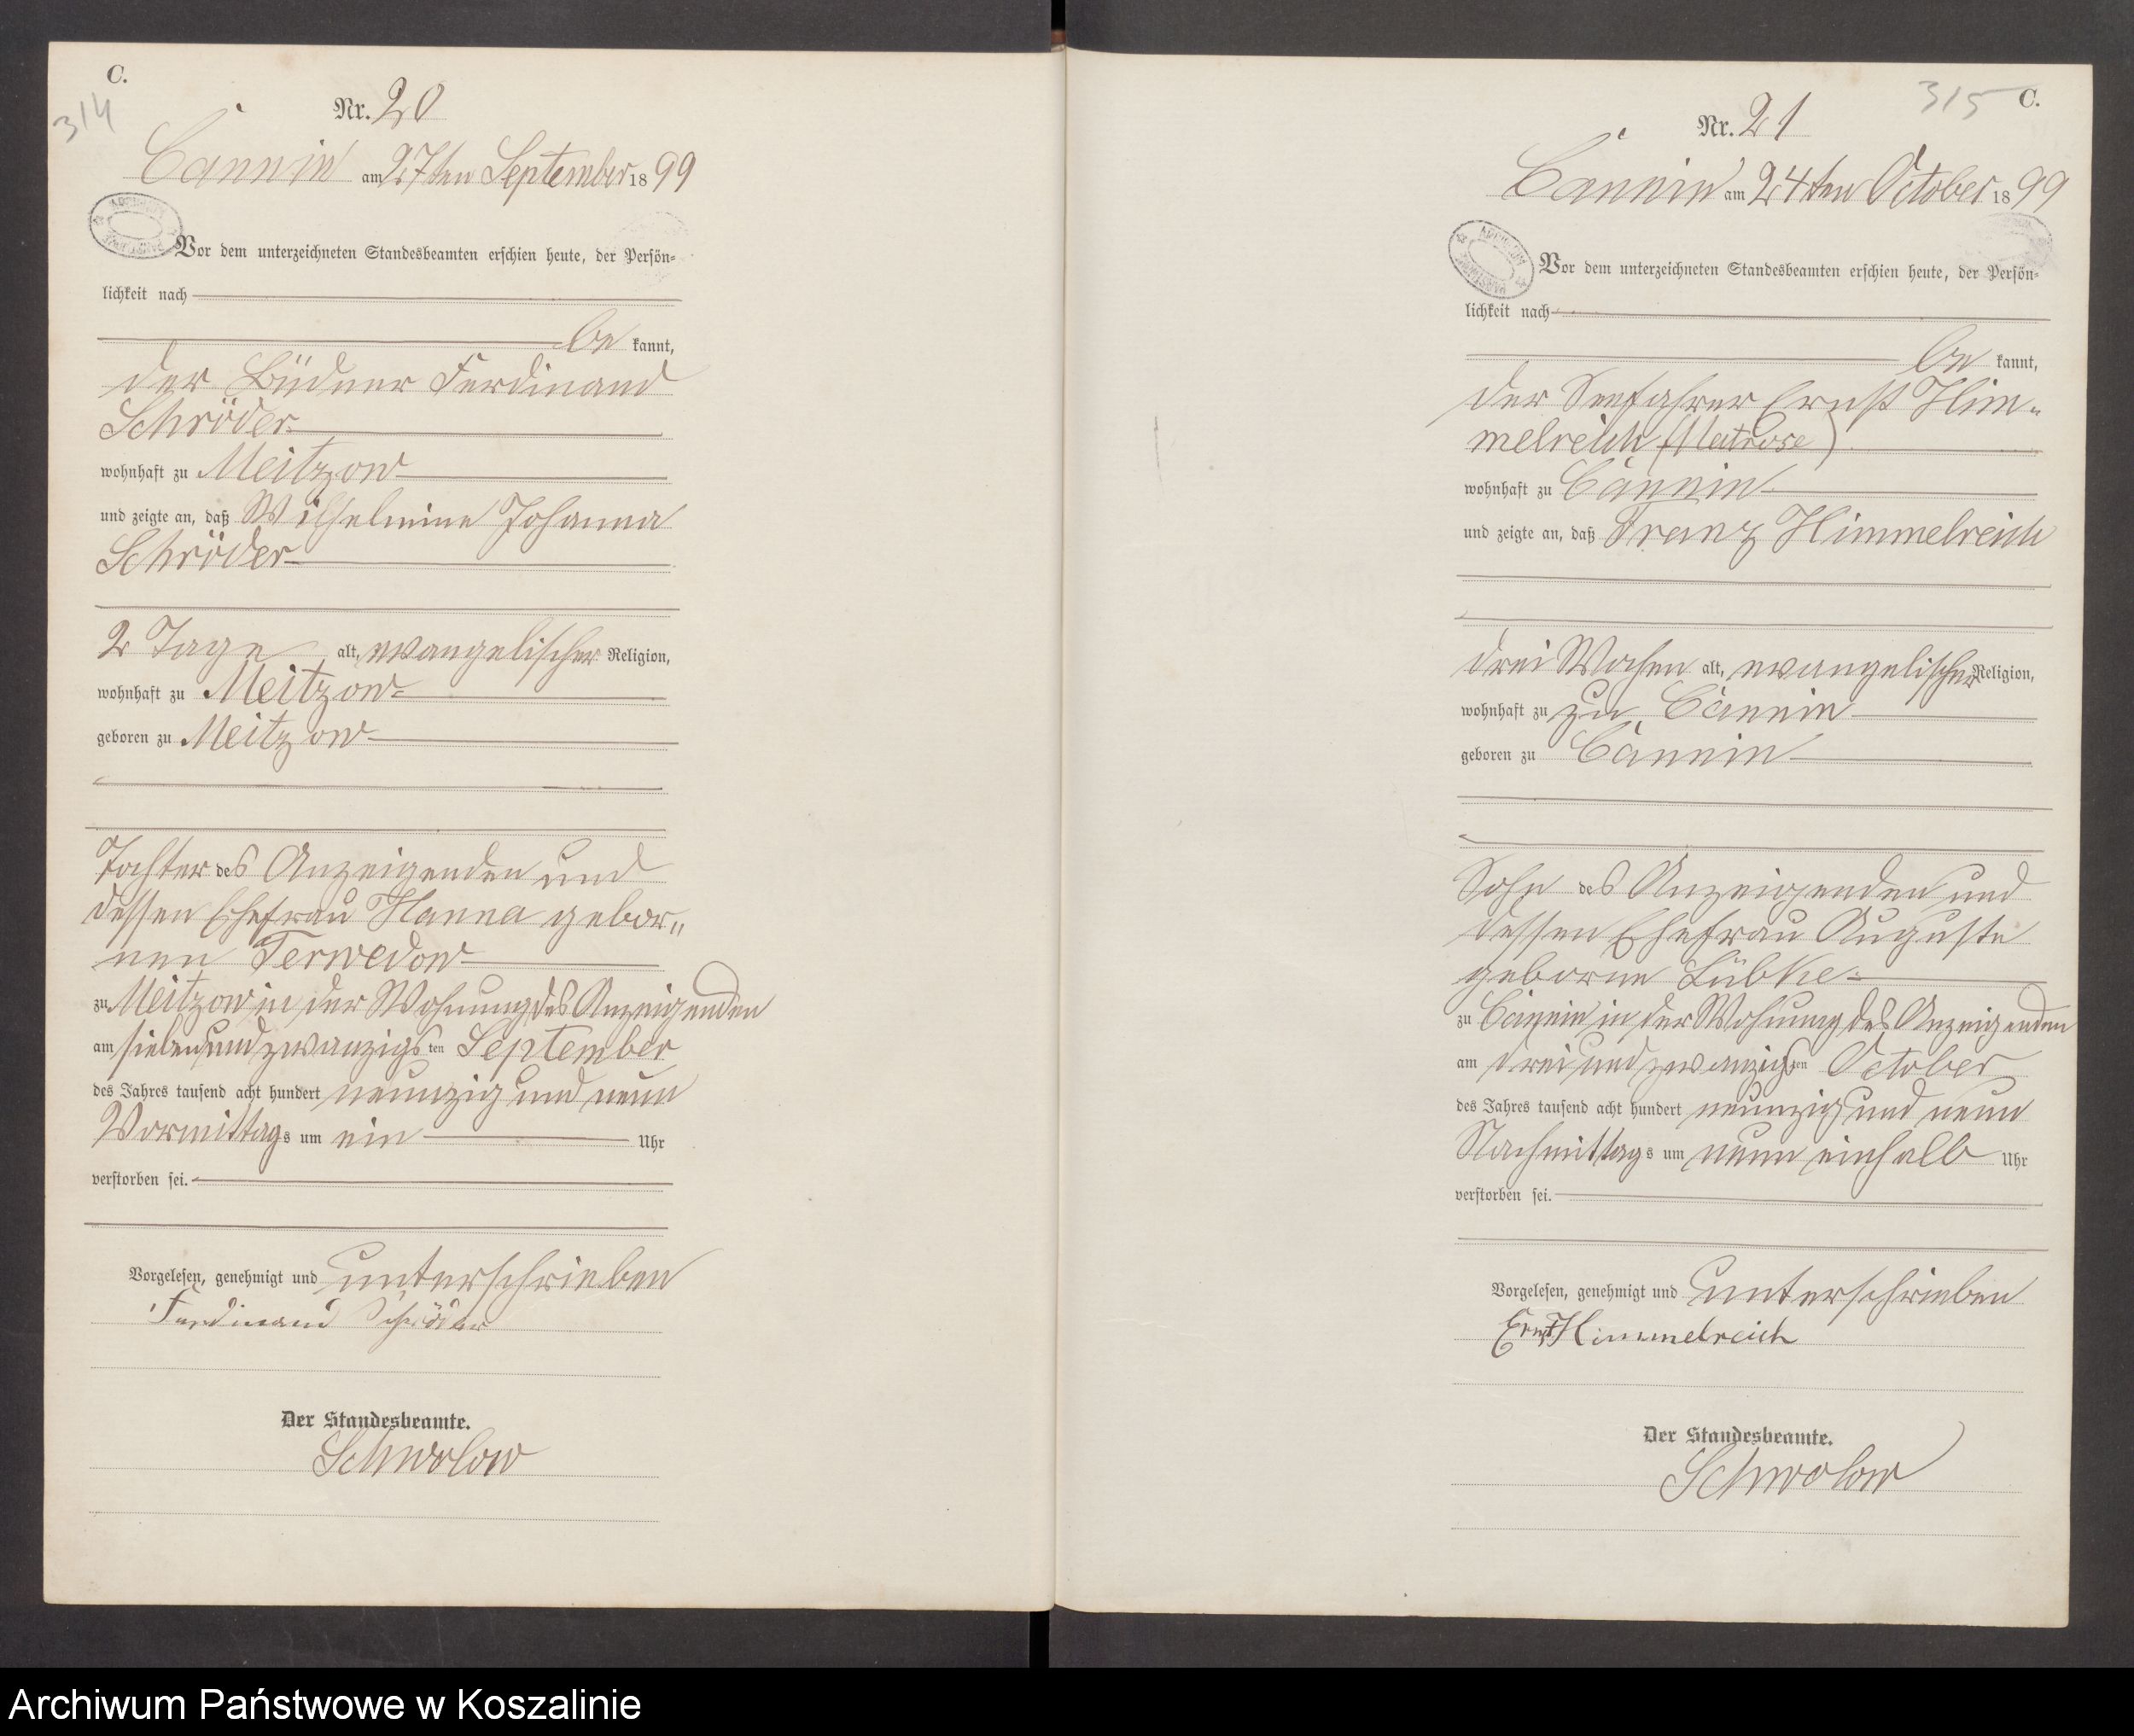 C.
314
Nr. 20
Cannin am 27ten September 1899
Vor dem unterzeichneten Standesbeamten erschien heute, der Persön-
lichkeit nach
be kannt,
der Büdner Ferdinand
Schröder
wohnhaft zu Meitzow
und zeigte an, daß Wilhelmine Johanna
Schröder
2 Tage alt, evangelischer Religion,
wohnhaft zu Meitzow
geboren zu Meitzow
Tochter des Anzeigenden und
dessen Ehefrau Hanna gebor„
nen Terwedow
zu Meitzow in der Wohnung des Anzeigenden
am siebenundzwanzigsten September
des Jahres tausend acht hundert neunzig und neun
Vormittags um ein Uhr
verstorben sei.
Vorgelesen, genehmigt und unterschrieben
Ferdinand Schröder
Der Standesbeamte.
Schwolow
315 C.
Nr. 21
Cannin am 24ten October 1899
Vor dem unterzeichneten Standesbeamten erschien heute, der Persön-
lichkeit nach
be kannt,
der Seefahrer Ernst Him-
melreich (Matrose)
wohnhaft zu Cannin
und zeigte an, daß Franz Himmelreich
drei Wochen alt, evangelischer Religion,
wohnhaft zu zu Cannin
geboren zu Cannin
Sohn des Anzeigenden und
dessen Ehefrau Auguste
geborne Lübke
zu Cannin in der Wohnung des Anzeigenden
am dreiundzwanzigsten October
des Jahres tausend acht hundert neunzig und neun
Nachmittags um neun einhalb Uhr
verstorben sei.
Vorgelesen, genehmigt und unterschrieben
Ernst Himmelreich
Der Standesbeamte.
Schwolow
Archiwum Państwowe w Koszalinie